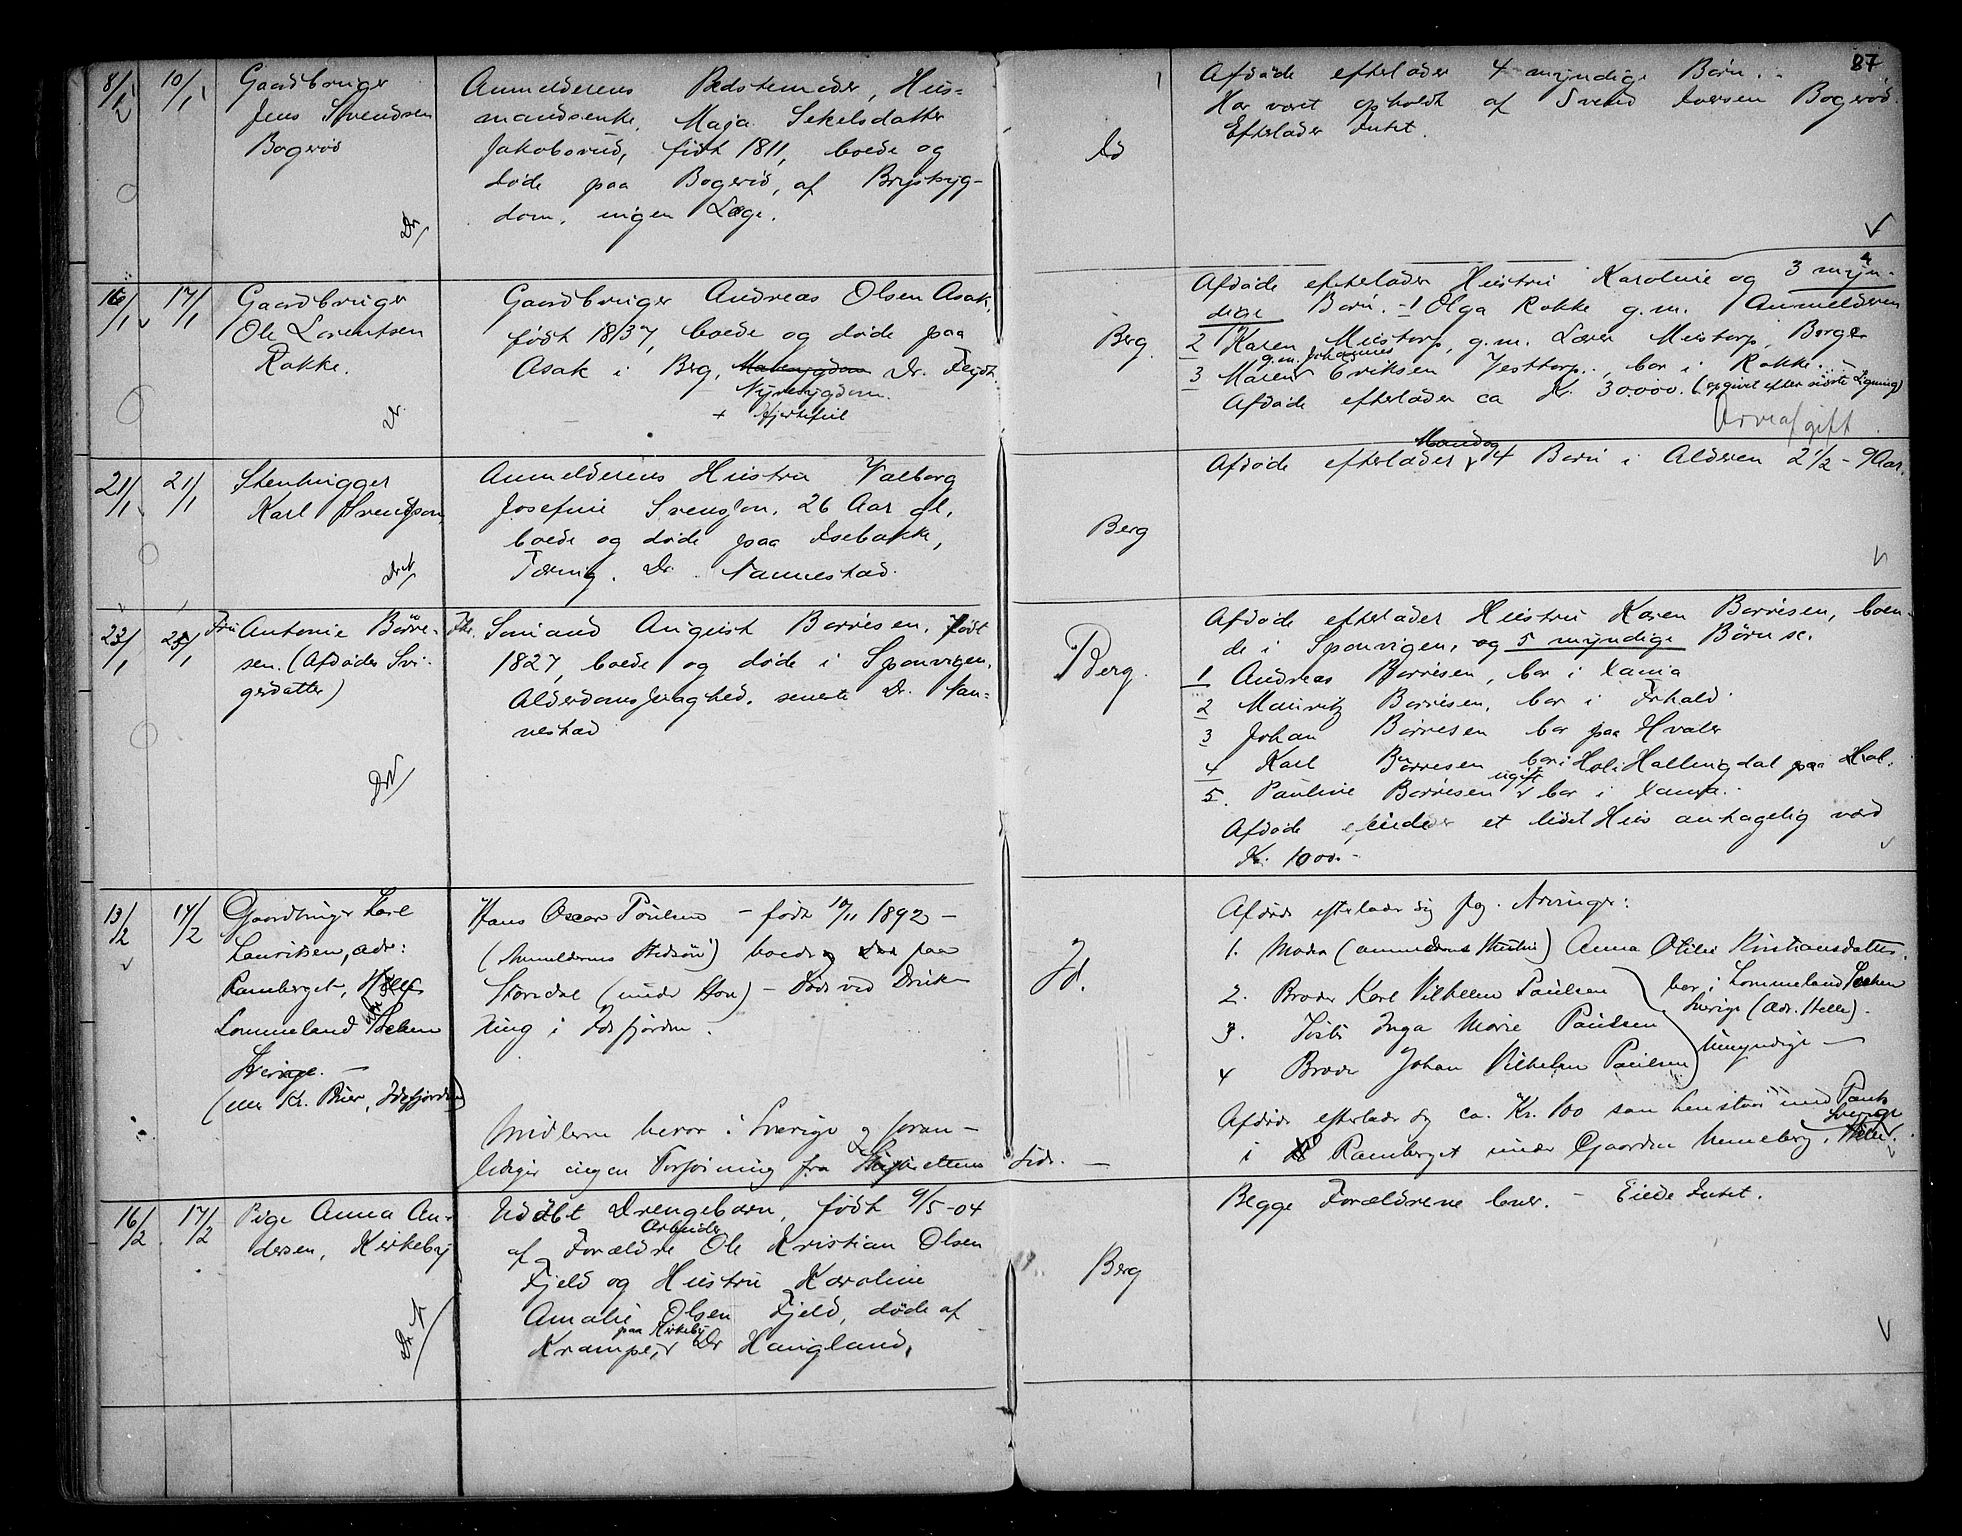 87
8/1 10/1 Gaardbruger
Jens Svendsen
Bogerød
Dr.
Anmelderens Bedstemoder, Hus-
mandsenke, Maja Sekelsdatter
Jakobsrud, født 1811, boede og
døde paa Bogerød, af Brystsyg-
dom, ingen Læge.
Id
Afdøde efterlader 4 myndige Børn.
Har været opholdt af Svend Iversen Bogerød.
Efterlader Intet.
16/1 17/1 Gaardbruger
Ole Lorentsen
Rokke.
Dr.
Gaardbruger Andreas Olsen Asak,
født 1837, boede og døde paa
Asak i Berg, Mavesygdom Dr.
Nyresygdom.
+ Hjertefeil
Berg.
Afdøde efterlader Hustru Karoline og 3 myn-
dige Børn. - 1 Olga Rokke g.m. Anmelderen
2 Karen Mustorp, g.m. Lærer Mustorp, Borge
g.m. Johannes
3 Maren Eriksen Vesttorp, bor i Rokke.
Afdøde efterlader ca Kr. 30.000. (opgivet efter sidste Ligning)
Arveafgift.
21/1 21/1 Stenhugger
Karl Svendson
Dr. N
Anmelderens Hustru Valborg
Josefine Svensson, 26 Aar gl.
boede og døde paa Isebakke,
Tæring. Dr. Nannestad.
Berg
Mand og
Afdøde efterlader 4 Børn i Alderen 2 1/2 - 9 Aar.
23/1 25/1 Fru Antonie Børre-
sen. (Afdødes Svi-
gerdatter)
Dr N
Fhv. Sømand August Børresen, født
1827, boede og døde i Sponvigen,
Alderdomssvaghed, seneste Dr. Nan-
nestad
Berg.
Afdøde efterlader Hustru Karen Børresen, boen-
de i Sponvigen, og 5 myndige Børn se.
1 Andreas Børresen, bor i Xania
2 Mauritz Børresen, bor i Frhald
3 Johan Børresen bor paa Hvaler
4 Karl Børresen bor i Hol i Hallingdal paa Hol.
ugift
5. Pauline Børresen bor i Xania.
Afdøde eiede et lidet Hus antagelig værd
Kr. 1000.-
13/2 14/2 Gaardbruger Karl
Lauritsen, adr:
Ramberget, Helle
Lommeland Sockem
Sverige. -
(eller Kr. Bruer, Idefjorden)
Hans Oscar Poulsen - født 10/11 1892 -
(Anmelderens Stedsøn) boede og døde paa
Storedal (under Hov) - døde ved Druk-
ning i Idefjorden.
Midlerne beror i Sverige og foran-
lediger ingen Forføining fra Skifterettens
Side. -
Id.
Afdøde efterlader sig flg. Arvinger:
1. Moder (anmelderens Hustru) Anna Otilie Kristiansdatter,
2. Broder Karl Vilhelm Paulsen
3. Søster Inga Marie Paulsen
4 Broder Johan Vilhelm Paulsen
bor i Lommeland Socken
Sverige (Adr. Helle).
Umyndige -
Afdøde efterlader sig ca. Kr. 100 som henstaar mod Pant
i Ramberget under Gaarden Henneberg, Helle. Sverige
16/2 17/2 Pige Anna An-
dersen, Kirkeby
Dr N
Udøbt Drengebarn, født 9/5-04
Arbeider
af Forældre Ole Kristian Olsen
Fjeld og Hustru Karoline
Amalie Olsen Fjeld, døde af
paa Kirkeby
Krampe, Dr Haugland.
Berg
Begge Forældrene lever. - Eiede Intet.